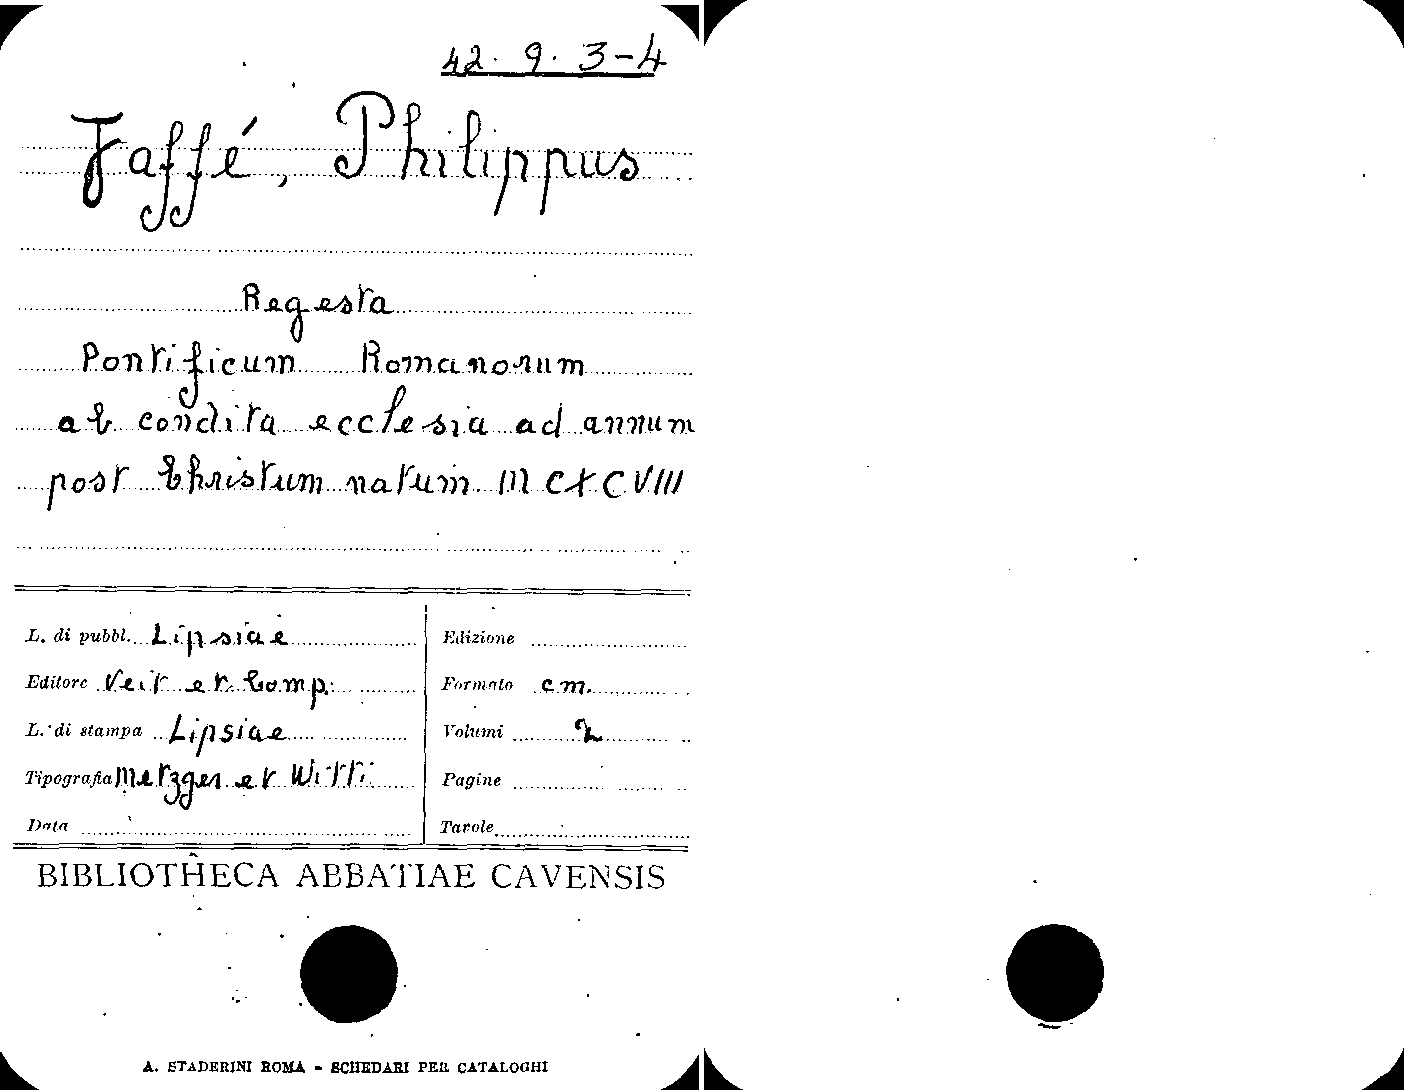 42. 9. 3-4
Jaffé, Philippus
Regesta
Pontificum Romanorum
ab condita ecclesia ad annum
post Christum natum MCXCVIII
L. di pubbl. Lipsiae
Editore Veit et Comp.
L. di stampa Lipsiae
Tipografia Metzger et Witti
Data
Edizione
Formato cm.
Volumi 2
Pagine
Tavole
BIBLIOTHECA ABBATIAE CAVENSIS
A. STADERINI ROMA - SCHEDARI PER CATALOGHI